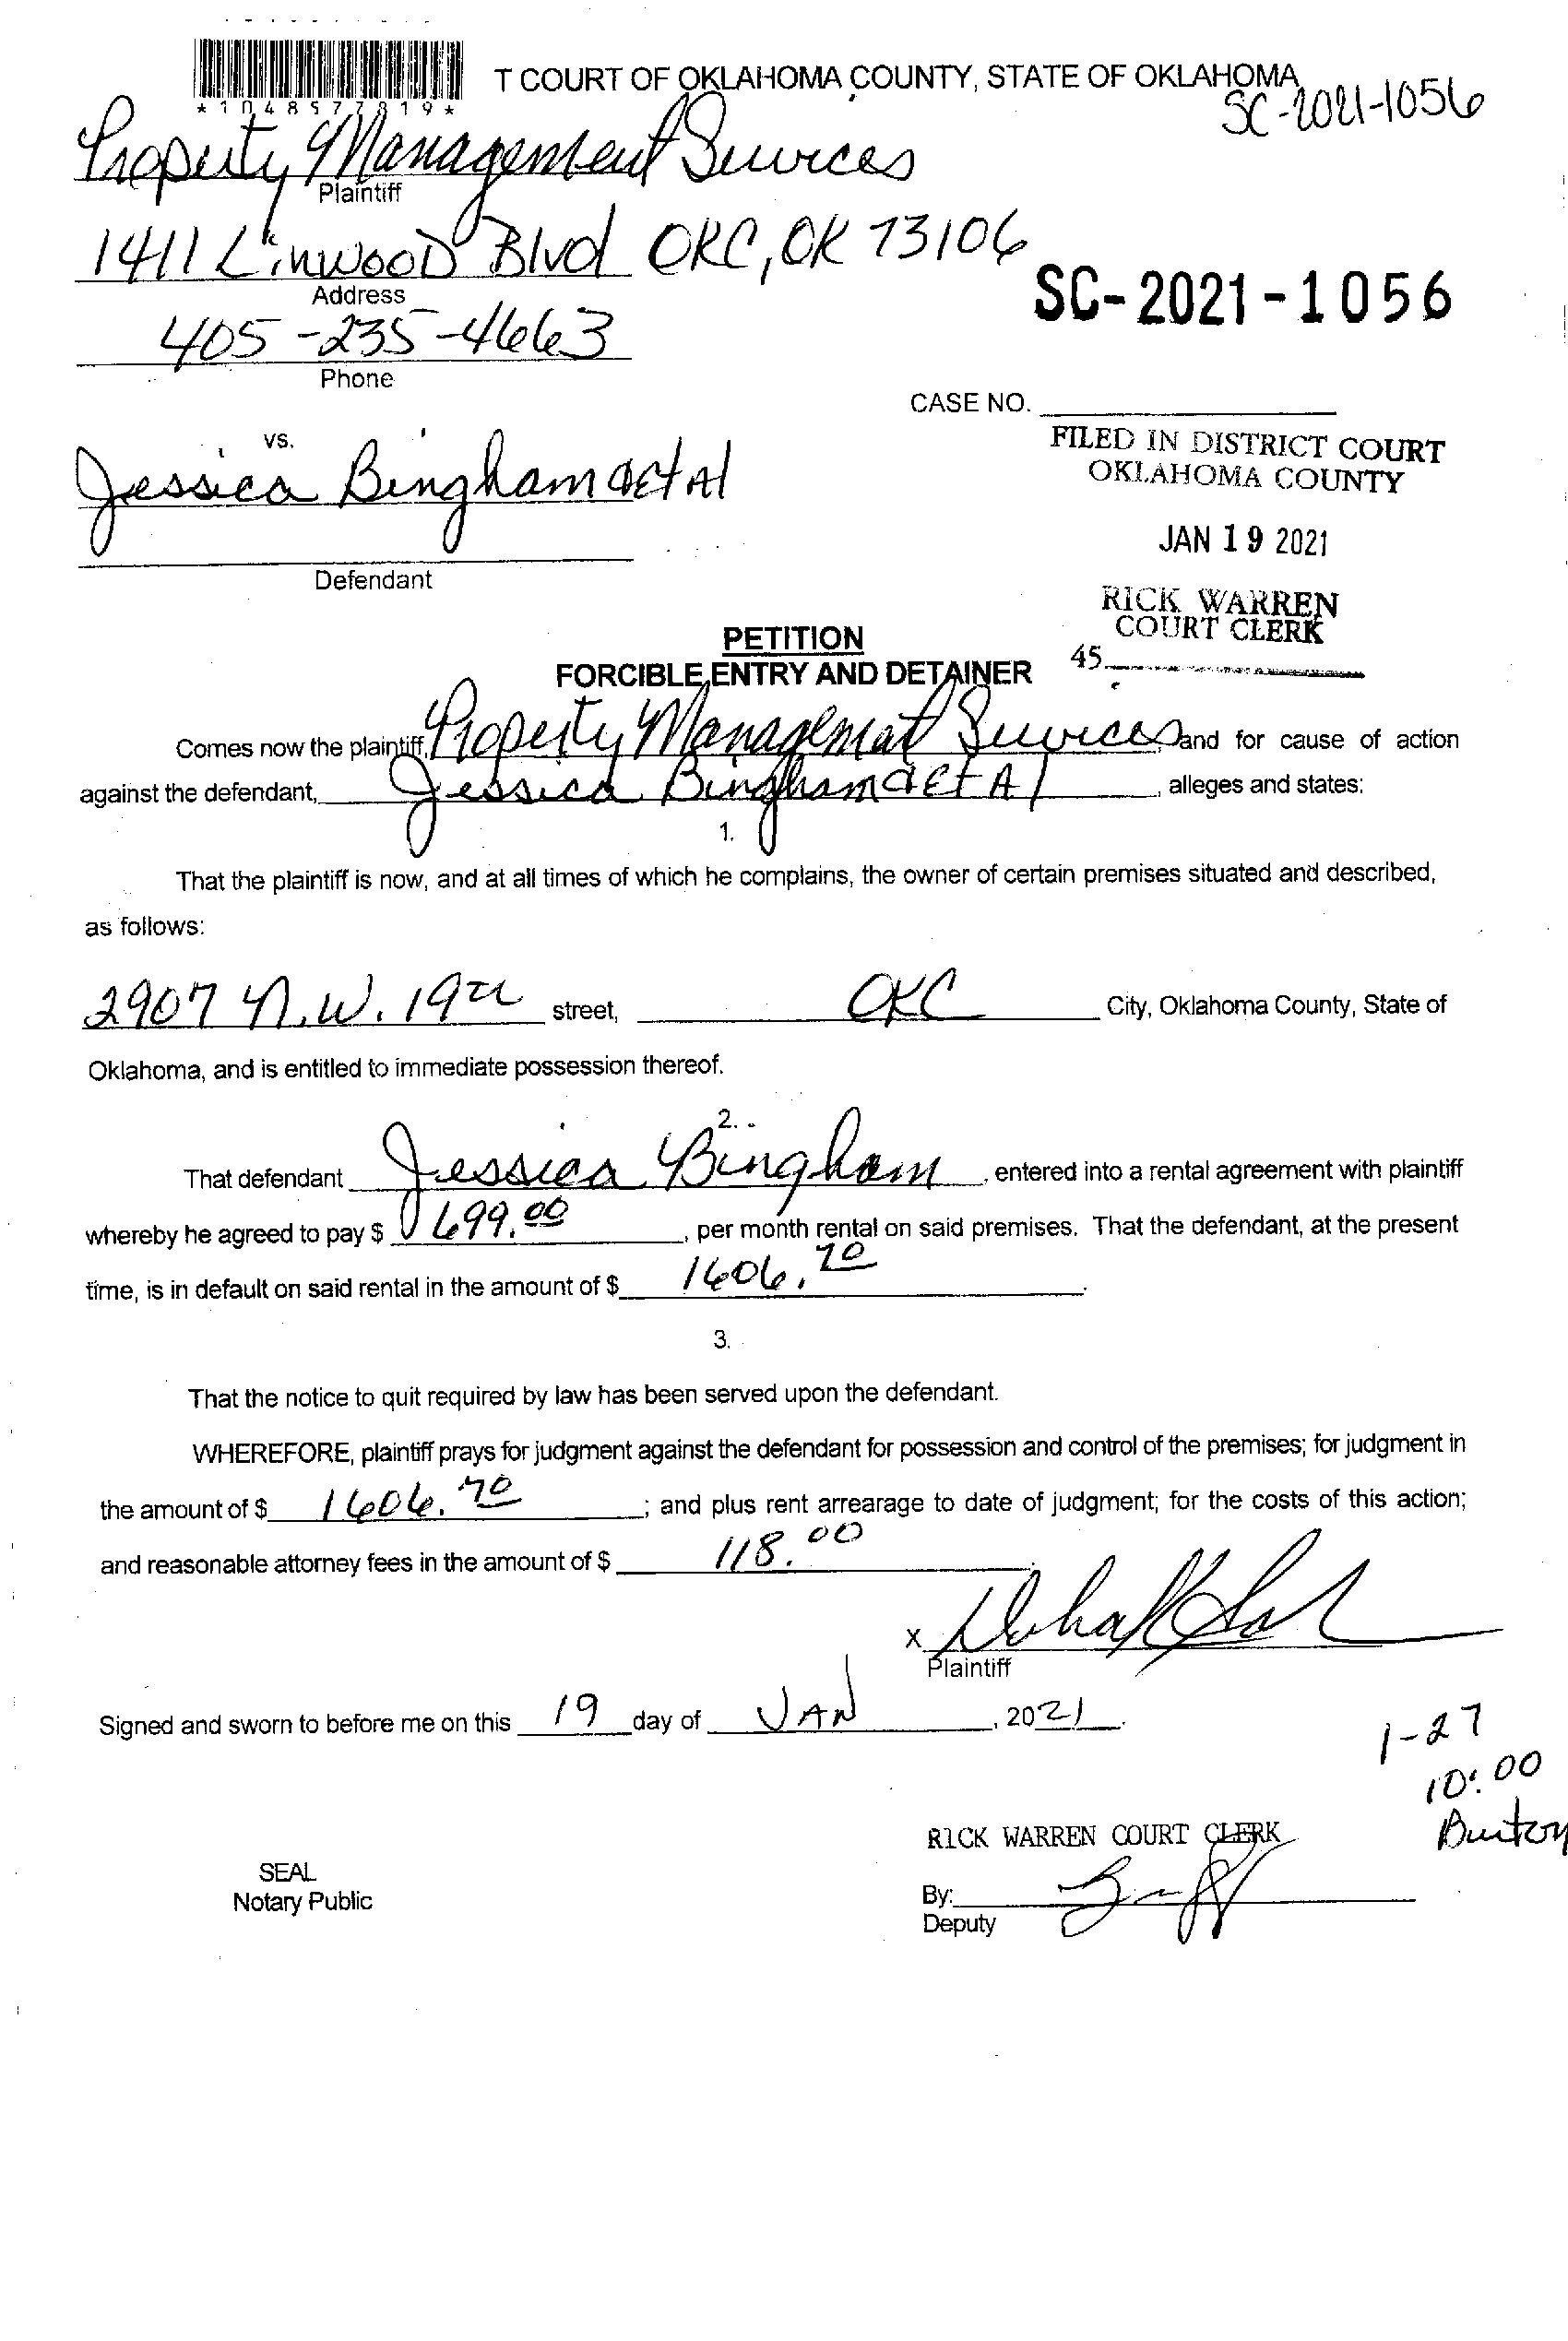 *1048577819*
T COURT OF OKLAHOMA COUNTY, STATE OF OKLAHOMA
SC-2021-1056
Property Management Services
Plaintiff
1411 Linwood Blvd OKC, OK 73106
Address
SC-2021-1056
405-235-4663
Phone
CASE NO.
vs.
FILED IN DISTRICT COURT
OKLAHOMA COUNTY
Jessica Bingham et Al
JAN 19 2021
Defendant
RICK WARREN
COURT CLERK
45
PETITION
FORCIBLE ENTRY AND DETAINER
Comes now the plaintiff, Property Management Services, and for cause of action
against the defendant, Jessica Bingham et Al, alleges and states:
1.
That the plaintiff is now, and at all times of which he complains, the owner of certain premises situated and described,
as follows:
2907 N.W. 19th street, OKC City, Oklahoma County, State of
Oklahoma, and is entitled to immediate possession thereof.
2.
That defendant Jessica Bingham, entered into a rental agreement with plaintiff
whereby he agreed to pay $ 699.00, per month rental on said premises. That the defendant, at the present
time, is in default on said rental in the amount of $ 1606.70.
3.
That the notice to quit required by law has been served upon the defendant.
WHEREFORE, plaintiff prays for judgment against the defendant for possession and control of the premises; for judgment in
the amount of $ 1606.70; and plus rent arrearage to date of judgment; for the costs of this action;
and reasonable attorney fees in the amount of $ 118.00.
X
Plaintiff
Signed and sworn to before me on this 19 day of JAN, 2021.
1-27
10:00
Burton
RICK WARREN COURT CLERK
SEAL
Notary Public
By:
Deputy